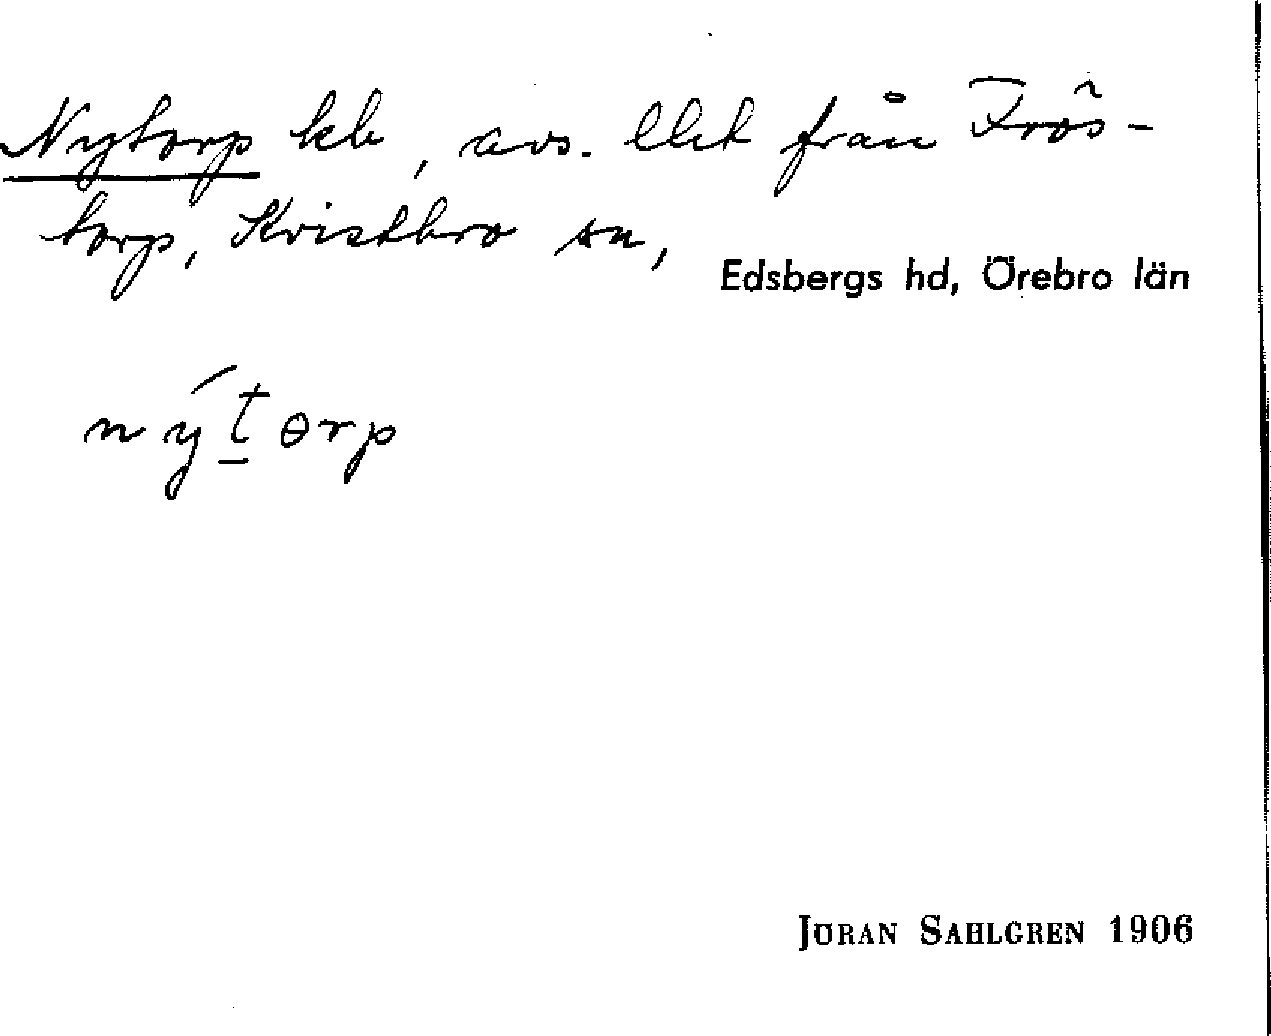 Nytorp kb, avs. llet från Frös-
torp, Kvistbro sn,
Edsbergs hd, Örebro län
nýt̠ɵrp
JÖRAN SAHLGREN 1906